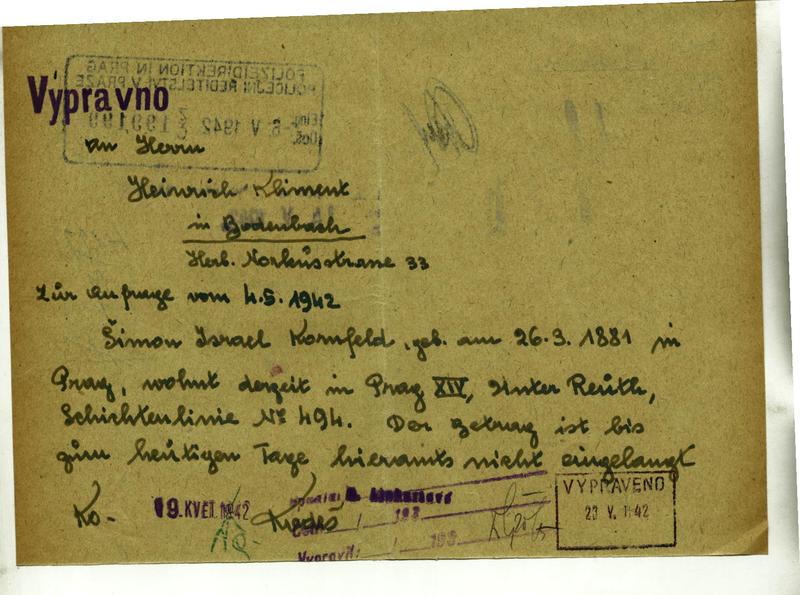 POLIZEIDIREKTION IN PRAG
POLICEJNÍ ŘEDITELSTVÍ V PRAZE
Výpravno
6. V 1942
an Herrn
Heinrich Kliment
in Bodenbach
Herb. Norkusstrasse 33
Zur Anfrage vom 4.5.1942
Šimon Israel Kornfeld, geb. am 26.3.1881 in
Prag, wohnt derzeit in Prag XIV, Unter Reuth,
Schichtenlinie No 494. Der Betrag ist bis
zum heutigen Tage hieramts nicht eingelangt
Ko-
19. KVĚT. 1942
193
Vypravil: / 193
VYPRAVENO
23 V. 1942